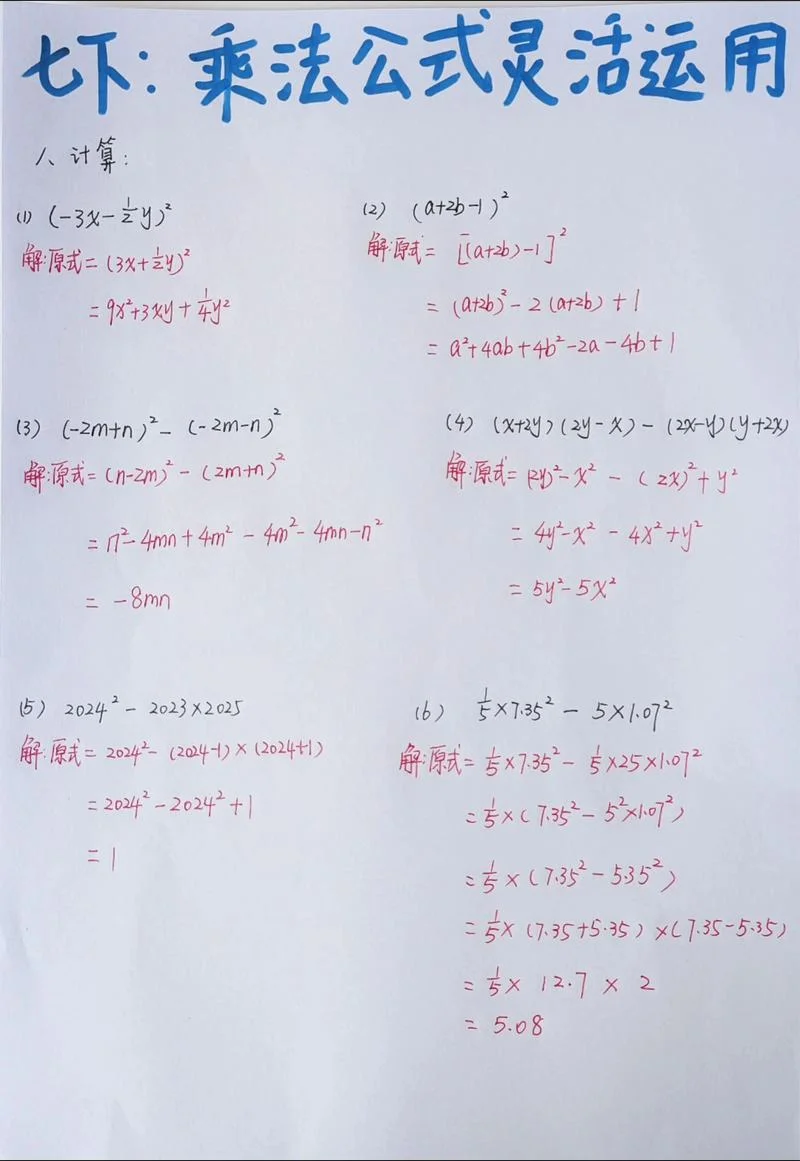 七下：乘法公式灵活运用
1、计算：
(1) (-3x-½y)²
解:原式= (3x+½y)²
= 9x²+3xy+¼y²
(2) (a+2b-1)²
解:原式= [(a+2b)-1]²
= (a+2b)²-2(a+2b)+1
= a²+4ab+4b²-2a-4b+1
(3) (-2m+n)²-(-2m-n)²
解:原式= (n-2m)²-(2m+n)²
= n²-4mn+4m²-4m²-4mn-n²
= -8mn
(4) (x+2y)(2y-x)-(2x-y)(y+2x)
解:原式= (2y)²-x²-(2x)²+y²
= 4y²-x²-4x²+y²
= 5y²-5x²
(5) 2024²-2023×2025
解:原式= 2024²-(2024-1)×(2024+1)
= 2024²-2024²+1
= 1
(6) ⅕×7.35²-5×1.07²
解:原式= ⅕×7.35²-⅕×25×1.07²
= ⅕×(7.35²-5²×1.07²)
= ⅕×(7.35²-5.35²)
= ⅕×(7.35+5.35)×(7.35-5.35)
= ⅕×12.7×2
= 5.08